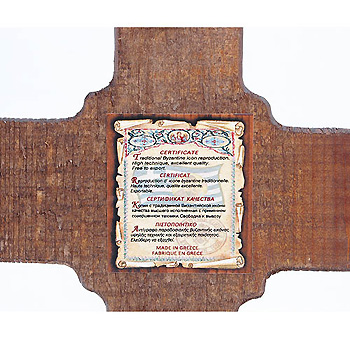 CERTIFICATE
Traditional Byzantine icon reproduction.
High technique, excellent quality.
Free to export.
CERTIFICAT
Reproduction d' icone byzantine traditionnelle.
Haute technique, qualite excellente.
Exportable.
СЕРТИФИКАТ КАЧЕСТВА
Копия с традизионной Византийской иконы
качества высшего исполнения с применением
совершенной техники. Свободна к вывозу
ΠΙΣΤΟΠΟΙΗΤΙΚΟ
Αντίγραφο παραδοσιακής βυζαντινής εικόνας
υψηλής τεχνικής και εξαιρετικής ποιότητος.
Ελεύθερη να εξαχθεί.
MADE IN GREECE
FABRIQUE EN GRECE